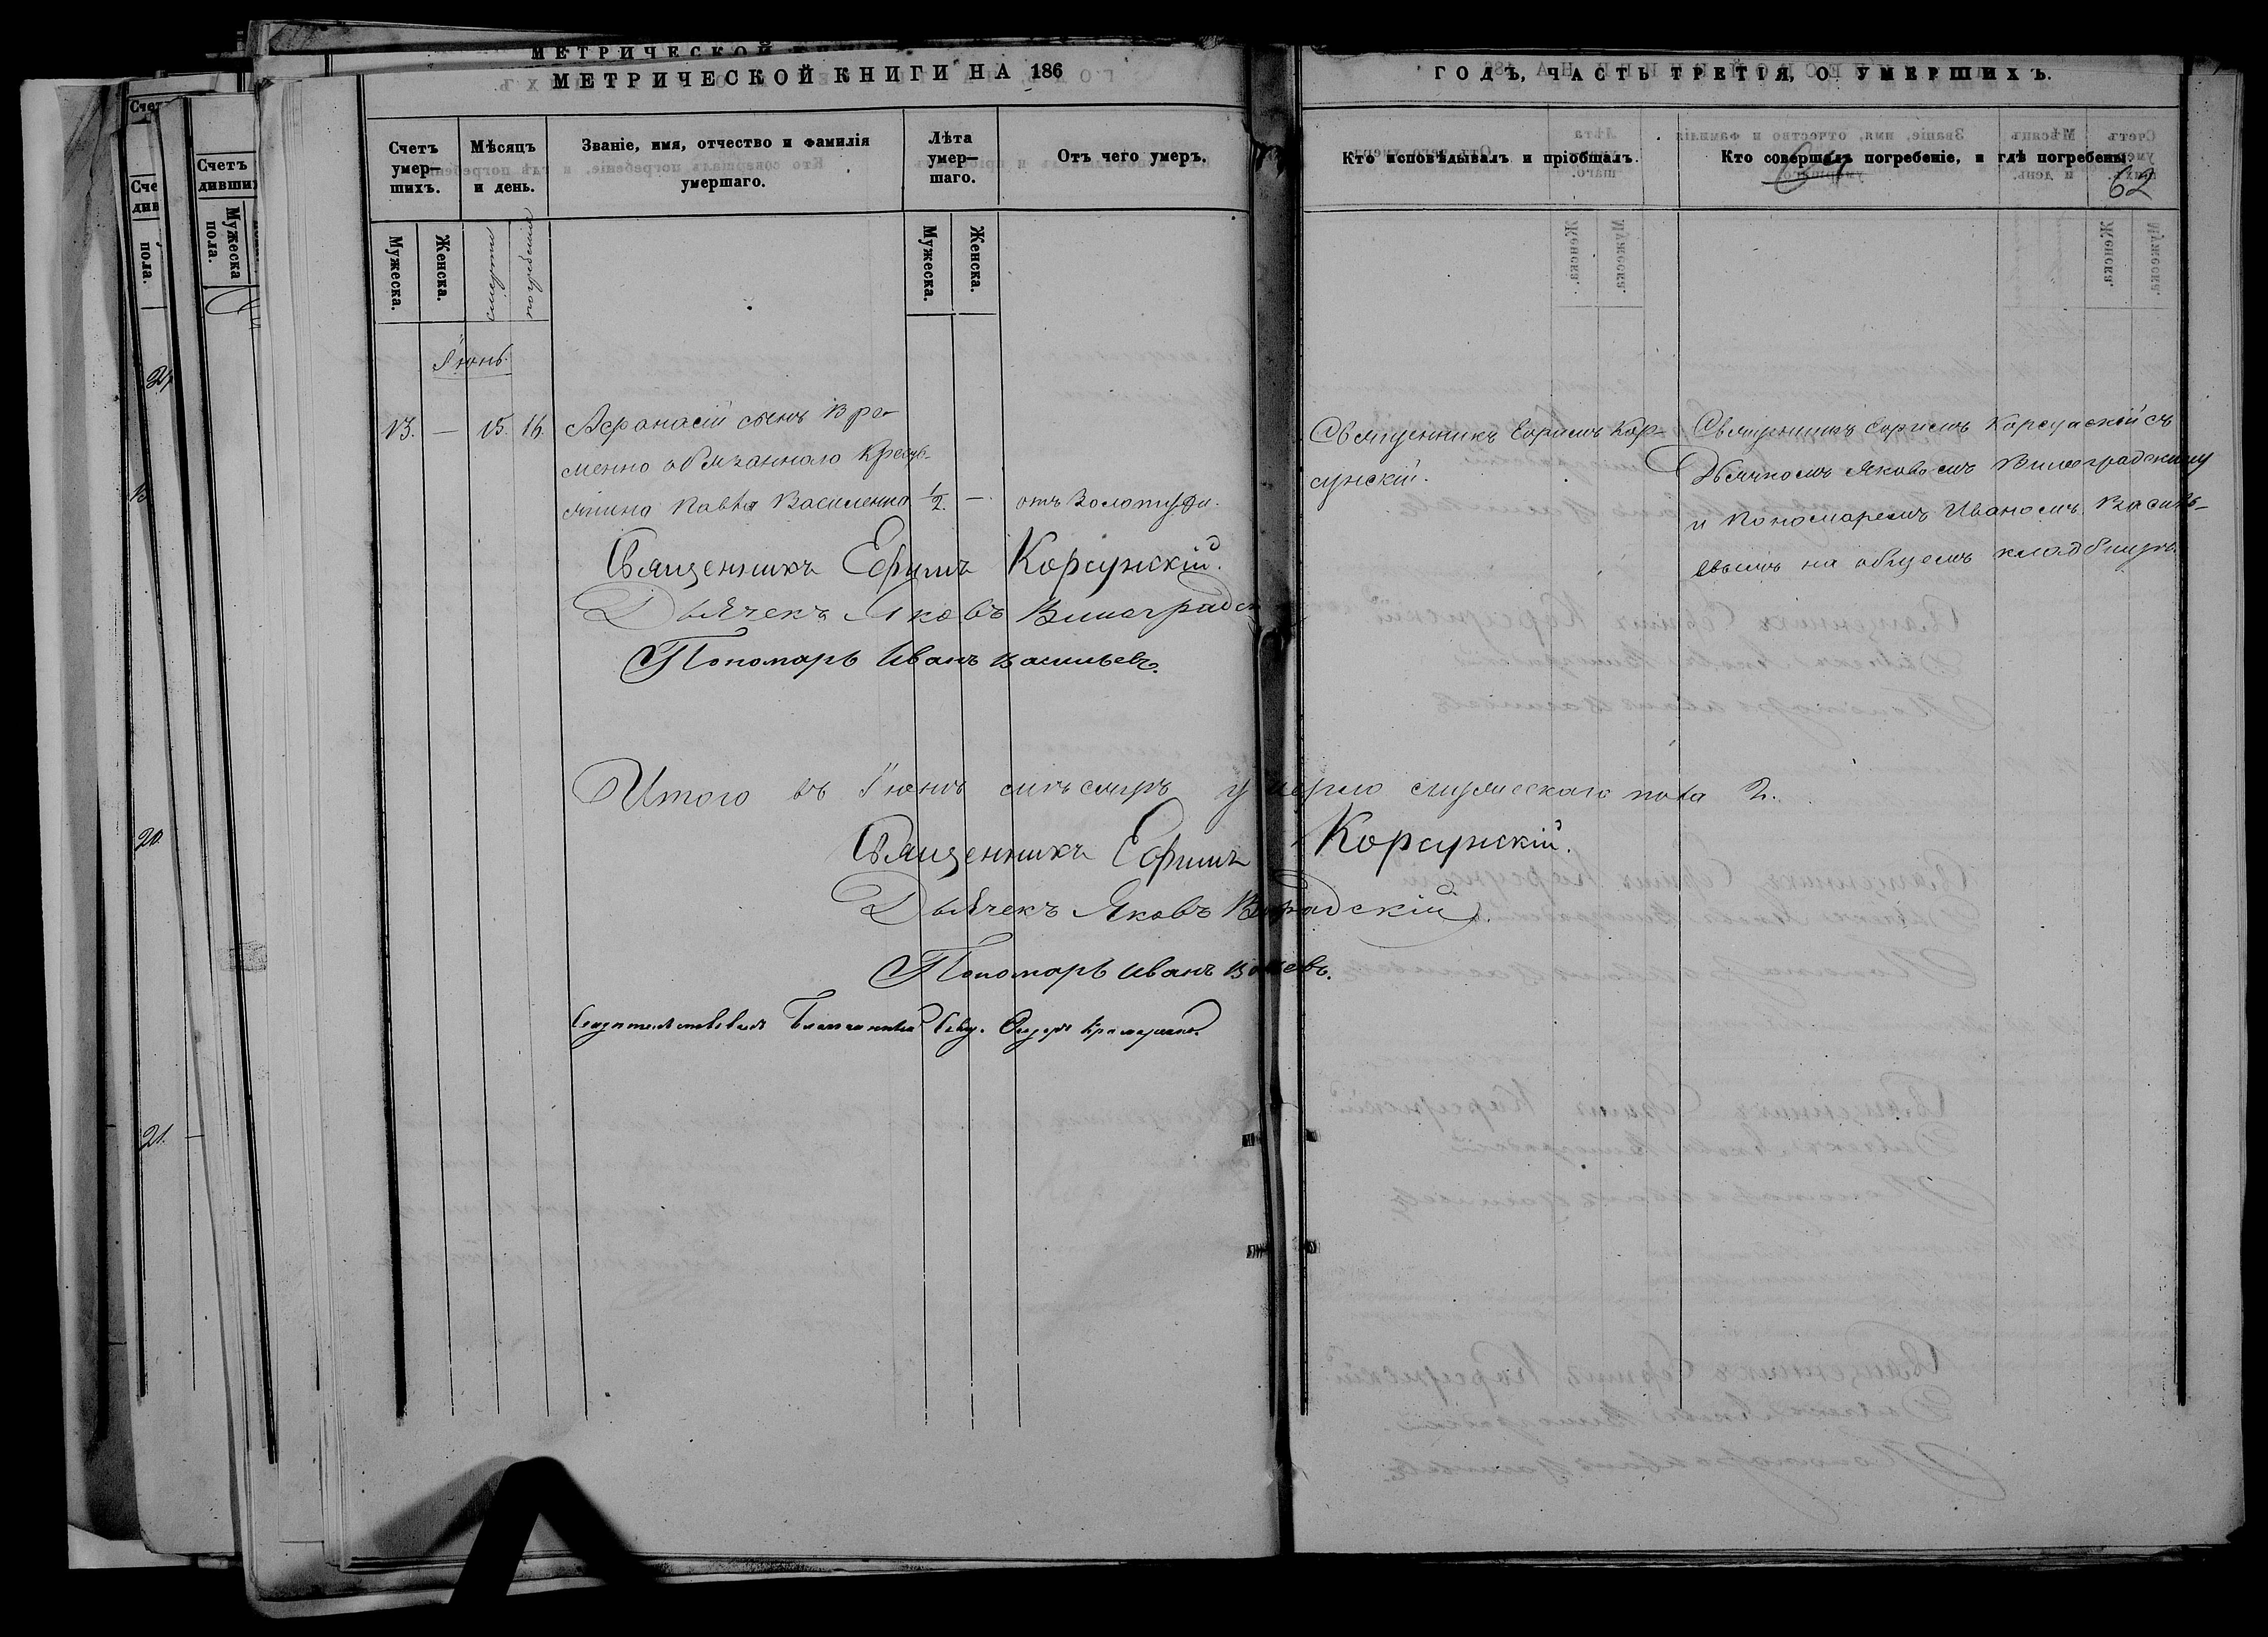 МЕТРИЧЕСКОЙ КНИГИ НА 186
ГОДЪ, ЧАСТЬ ТРЕТІЯ, О УМЕРШИХЪ.
62
Счетъ умер-
шихъ.
Мѣсяцъ
и день.
Званіе, имя, отчество и фамилія
умершаго.
Лѣта
умер-
шаго.
Отъ чего умеръ.
Кто исповѣдывалъ и пріобщалъ.
Кто совершалъ погребеніе, и гдѣ погребены.
Мужеска.
Женска.
смерти
погребенія
Мужеска.
Женска.
Іюнь.
13. — 15. 16.
Афанасій сынъ вре-
менно обязаннаго кресть-
янина Павла Василенка
1/2. —
отъ Золотухи.
Священникъ Ефимъ Кор-
сунскій.
Священникъ Ефимъ Корсунскій съ
Дьячкомъ Яковомъ Виноградскимъ
и Пономаремъ Иваномъ Василь-
евымъ на общемъ кладбищѣ.
Священникъ Ефимъ Корсунскій.
Дьячекъ Яковъ Виноградск
Пономарь Иванъ Васильевъ.
Итого въ Іюнѣ мѣсяцѣ умерло мужескаго пола 2.
Священникъ Ефимъ Корсунскій.
Дьячекъ Яковъ Виноградскій.
Пономарь Иванъ Васильевъ.
Свидѣтельствовалъ Благочинный Свящ.